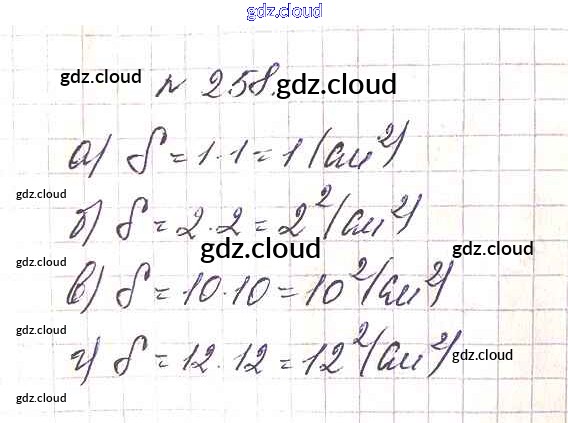 gdz.cloud
gdz.cloud № 258. gdz.cloud
а) S = 1 · 1 = 1 (см²)
gdz.cloud
б) S = 2 · 2 = 2² (см²)
gdz.cloud gdz.cloud
gdz.cloud
в) S = 10 · 10 = 10² (см²)
gdz.cloud
г) S = 12 · 12 = 12² (см²) gdz.cloud
gdz.cloud gdz.cloud